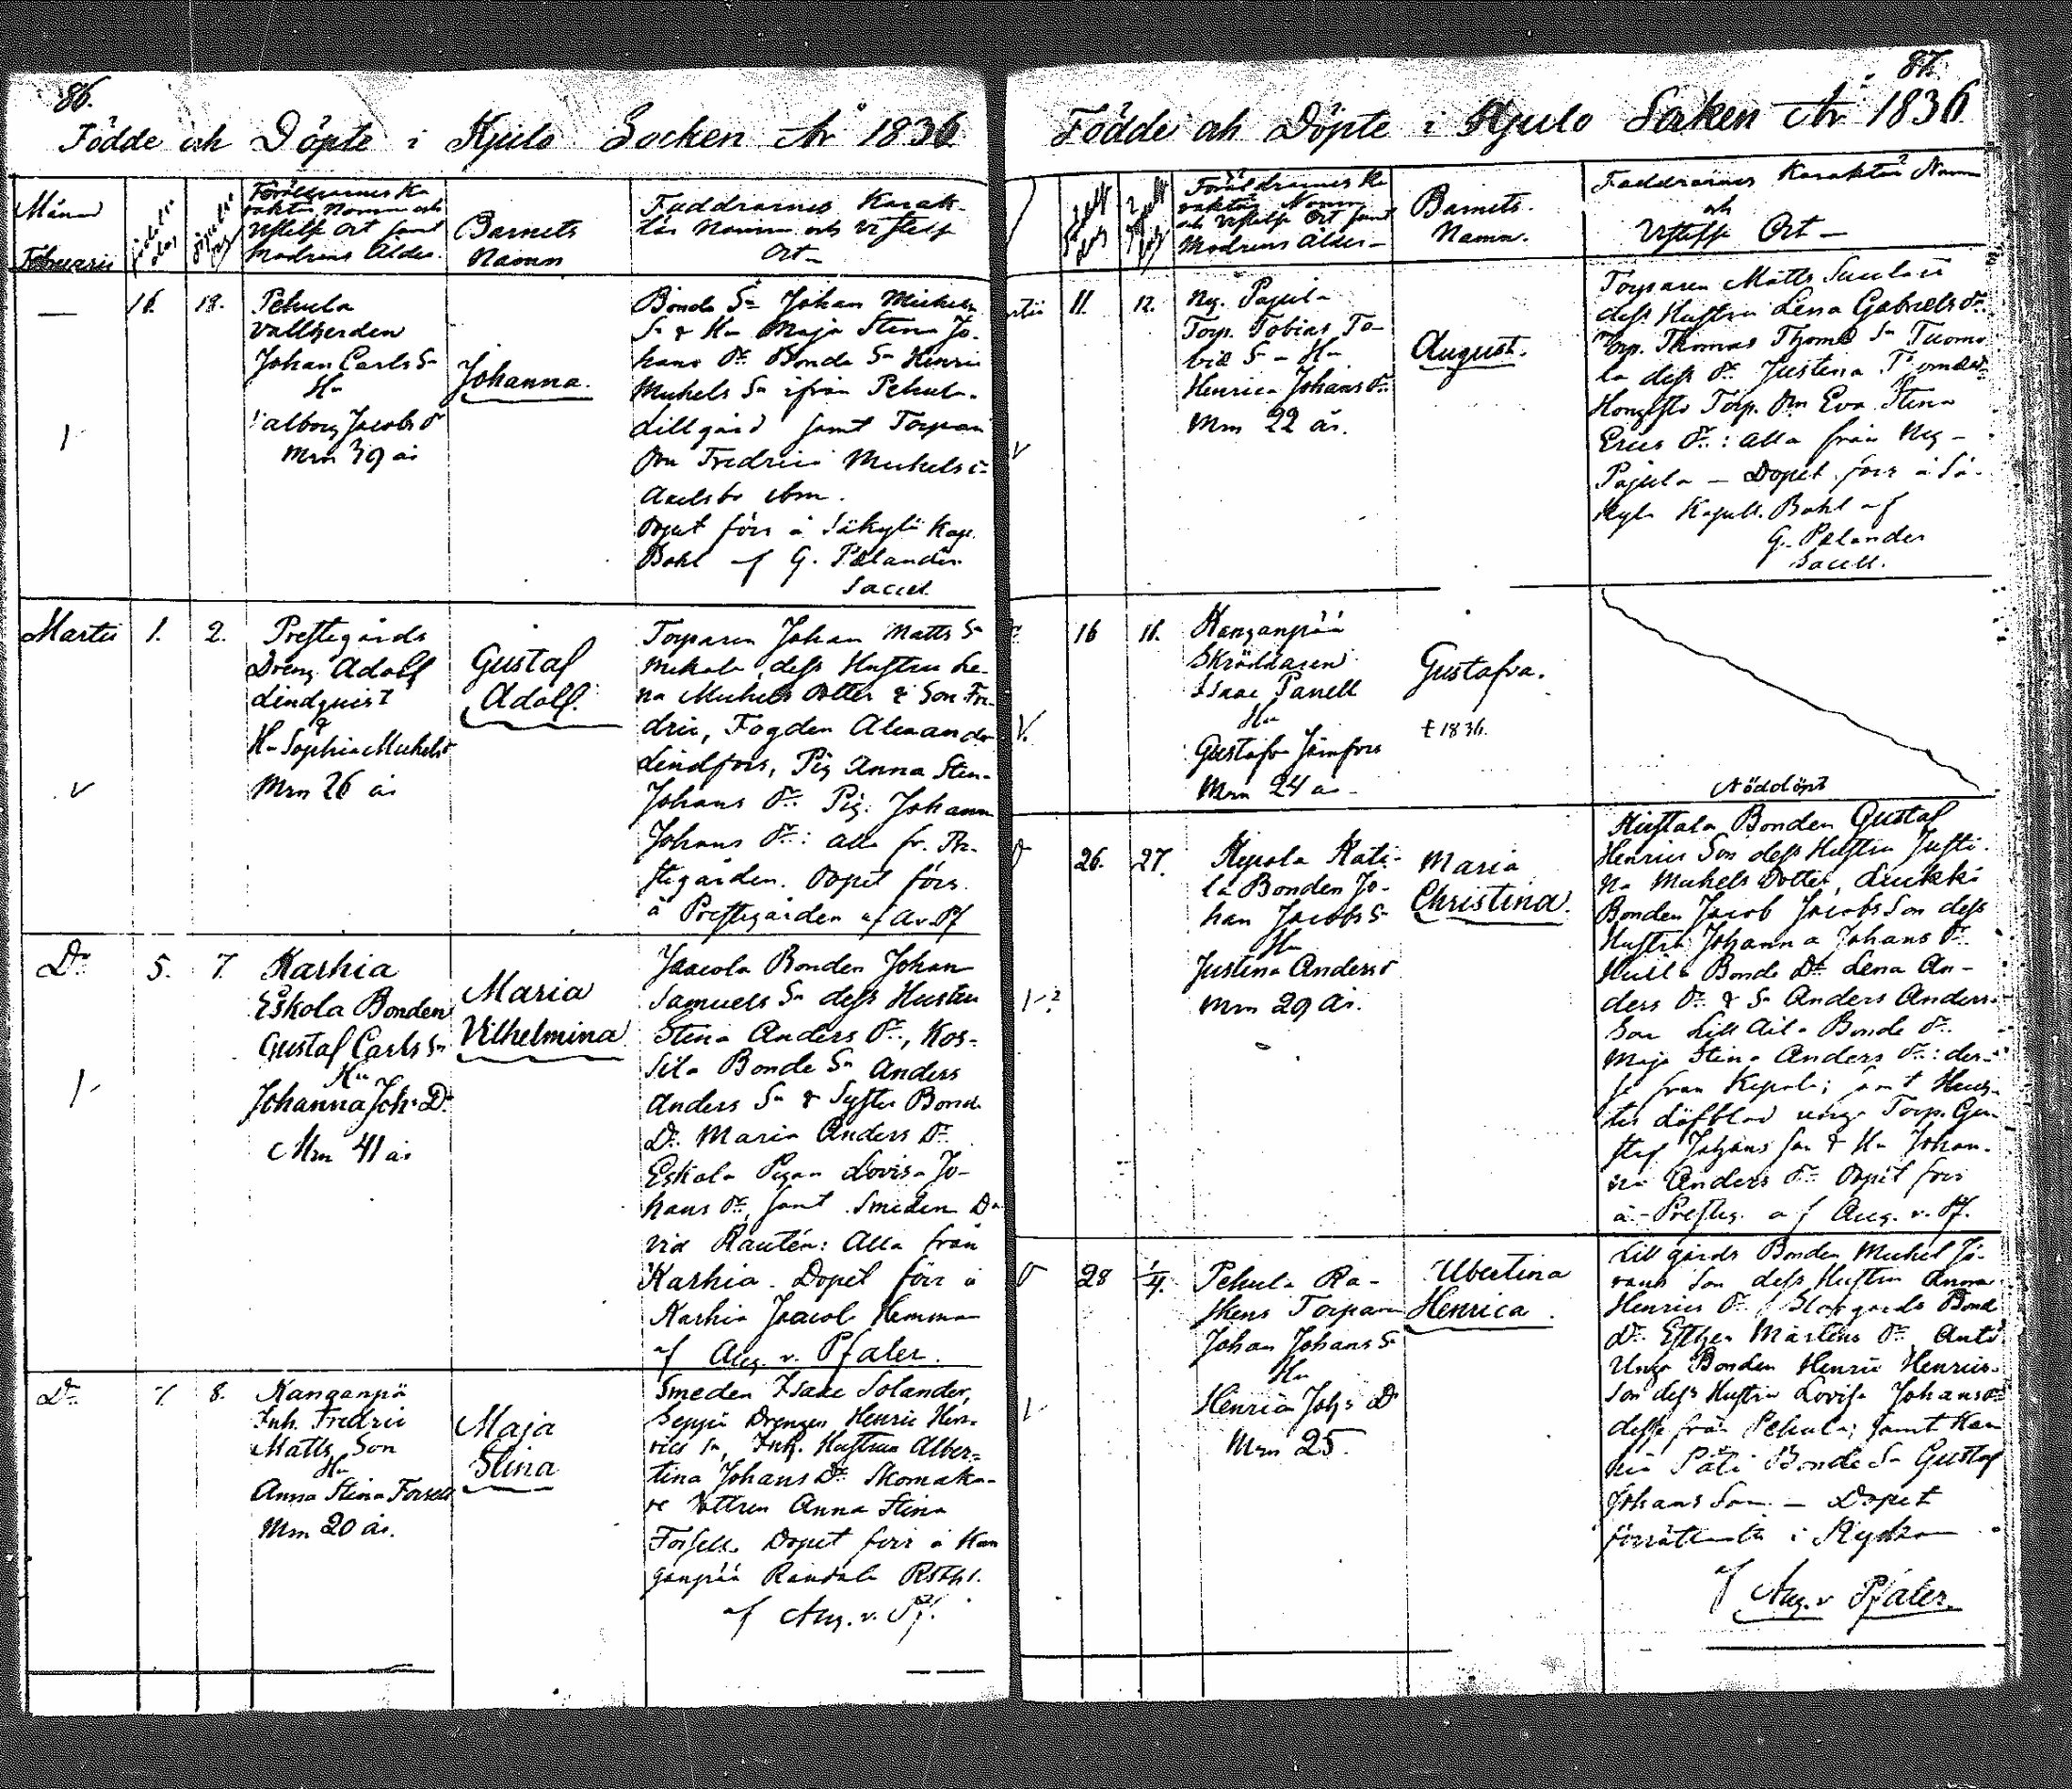 86.
Födde och Döpte i Kjulo Socken År 1836
Månad
Februarii
födelse dag
Föräldrarnes Ka
raktär Namn och
Vistelse Ort samt
Modrens Ålder.
Barnets
Namn
Faddrarnes Karak-
tär Namn och Vistelse
Ort
— 16. 18.
Pehula
Vallherden
Johan Carls Sn
Hu
Valborg Jacobs dr
Mrn 39 år
Johanna.
Bonde Sn Johan Michels
Sn & Hu Maja Stina Jo-
hans Dr Bonde Sn Henric
Michels Sn ifrån Pehula
Lillgård samt Torpare
Fredric Michels
Dopet förr å Säkylä Kap.
Bohl af G. Polander
Sacell.
Martii 1. 2.
Prestegårds
Dreng Adolf
Lindquist
&
Hu Sophia Michels dr
Mrn 26 år
Gustaf
Adolf.
Torparen Johan Matts Sn
Mikola, dess Hustru Le-
na Michels dotter & Son Fre-
dric, Fogden Alexander
Lindfors, Pig Anna Stina
Johans Dr Pig. Johanna
Johans Dr: alla fr. Pre-
stegården. Dopet förr.
å Prestegården af A.v.Pf
Do 5. 7.
Karhia
Eskola Bonden
Gustaf Carls Sn
Hu
Johanna Joh. Dr
Mrn 41 år
Maria
Vilhelmina
Jaacola Bonden Johan
Samuels Sn dess Hustru
Stina Anders Dr, Kos-
sila Bonde Sn Anders
Anders Sn & Syster Bonde
Dr Maria Anders Dr
Eskola Pigan Lovisa Jo-
hans Dr, samt Smeden Da-
vid Rautén: Alla från
Karhia. Dopet förr å
Karhia Jaacola Hemman
af Aug. v. Pfaler.
Do 7. 8.
Kanganpä
Inh. Fredric
Matts Son
Hu
Anna Stina Forsell
Mrn 20 år.
Maja
Stina
Smeden Isaac Solander,
Seppä Drengen Henric Hen-
rics Sn, Inh. Hustrun Alber-
tina Johans Dr Skomaka-
re Dottren Anna Stina
Forsell. Dopet förr å Kan
ganpää Randala Rsthl.
af Aug. v. Pf.
87.
Födde och Döpte i Kjulo Socken År 1836
Föräldrarnes Ka
raktär Namn
och Vistelse Ort samt
Modrens Ålder
Barnets
Namn.
Faddrarnes Karaktär Namn
och
Vistelse Ort
11. 12.
Ng. Pajula
Torp. Tobias To-
bias Sn Hu
Henrica Johans Dr
Mrn 22 år.
August.
Torparen Matts
dess Hustru Lena Gabriels Dr
Torp. Thomas Thomæ Sn Tuomo
la dess Dr Justina
Torp. Eva Stina
Erics Dr: alla från Ng
Pajula — Dopet förr å Sä-
kylä Kapell. Bohl af
G. Polander
Sacell.
16 16.
Kanganpää
Skräddaren
Isaac Panell
Hu
Gustafva Jernfors
Mrn 24 år
Gustafva.
† 1836.
Nöddöpt
26. 27.
Kepola Kati-
la Bonden Jo-
han Jacobs Sn
Hu
Justina Anders dr
Mrn 29 år.
Maria
Christina.
Bonden Gustaf
Henrics Son dess Hustru Justi-
na Michels Dotter, Luukki
Bonden Jacob Jacobs Son dess
Hustru Johanna Johans Dr
Bonde Dr Lena An-
ders Dr & Sn Anders Anders
Son Bonde Dr
Maja Stina Anders Dr: des-
se från Kepola; samt
unge Torp. Gu-
staf Johans Son & Hu Johan-
na Anders Dr Dopet förr
å Presteg. af Aug. v. Pf.
28 1/4.
Pehula Ra-
skens Torparen
Johan Johans Sn
Hu
Henrica Joh. Dr
Mrn 25.
Ubertina
Henrica.
Lillgårds Bonden Michel Jö-
rans Son dess Hustru Anna
Henrics Dr, Storgårds Bonde
Dr Esther Mårtens Dr Anti
Unge Bonden Henric Henrics
Son dess Hustru Lovisa Johans Dr
desse från Pehula; samt
Päti Bonde Sn Gustaf
Johans Son. — Dopet
förrättades i Kyrkan
af Aug. v Pfaler.